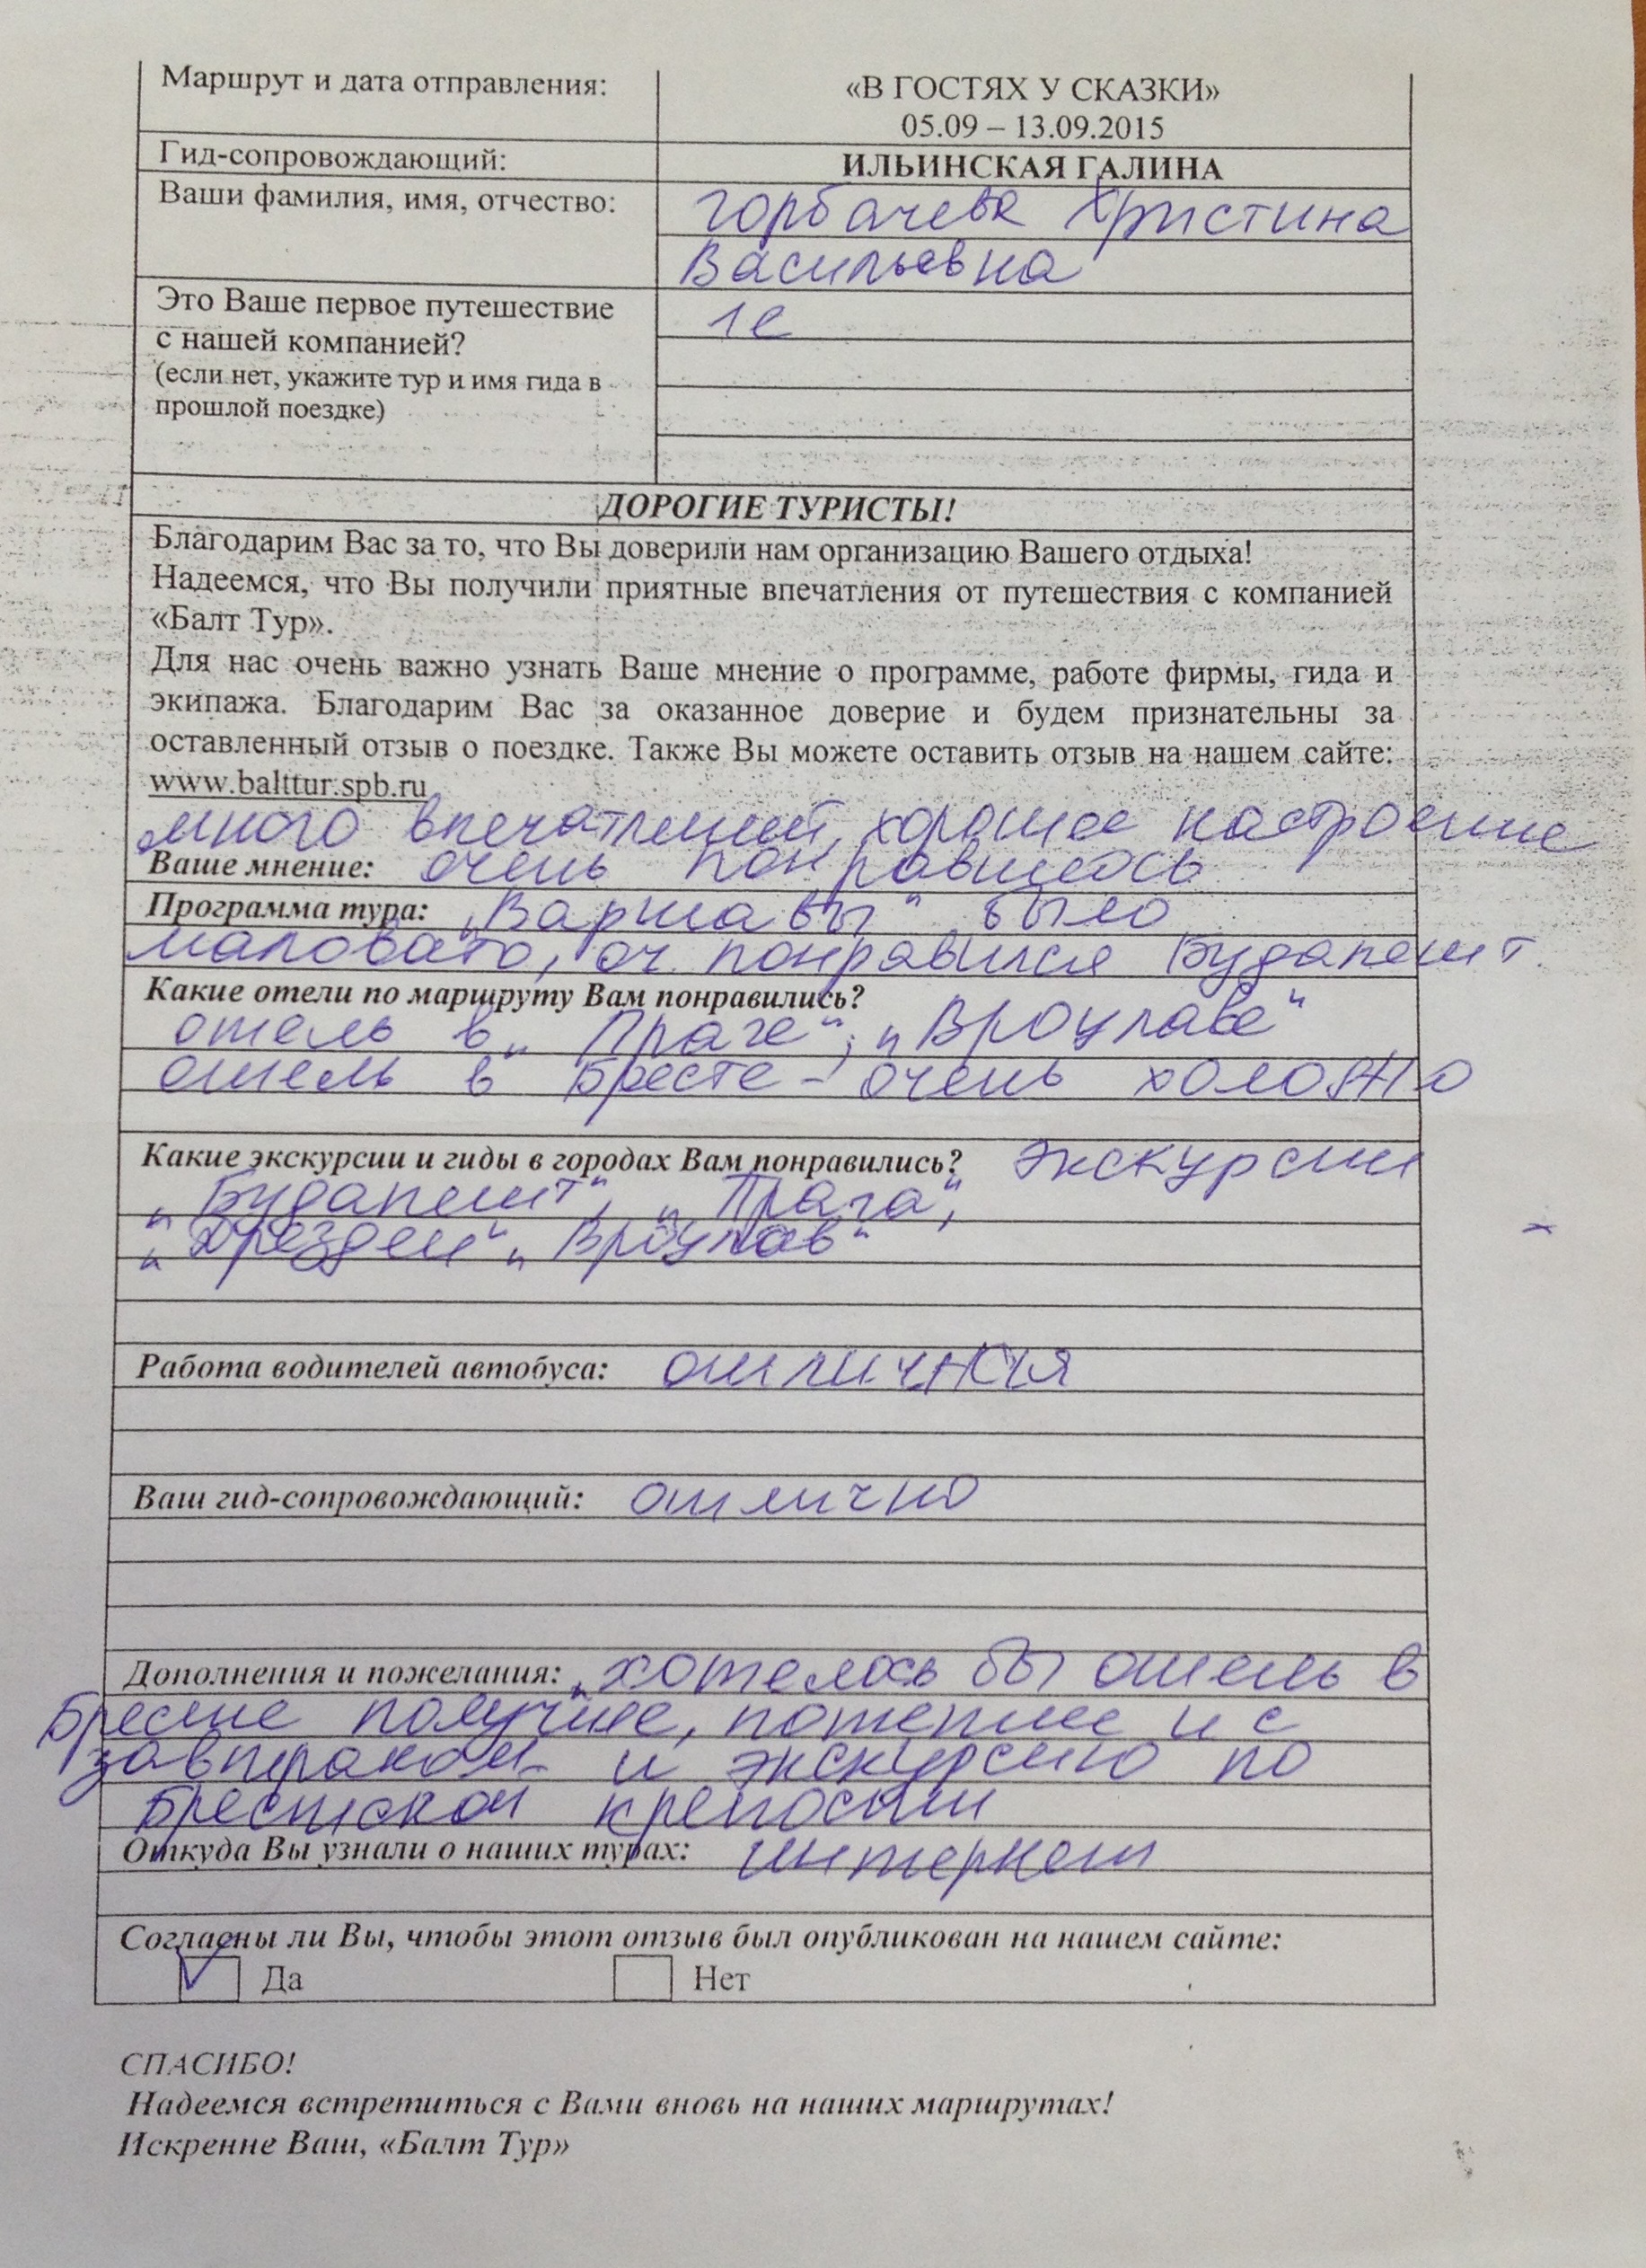 Маршрут и дата отправления:
«В ГОСТЯХ У СКАЗКИ»
05.09 – 13.09.2015
Гид-сопровождающий:
ИЛЬИНСКАЯ ГАЛИНА
Ваши фамилия, имя, отчество:
Горбачева Христина
Васильевна
Это Ваше первое путешествие
с нашей компанией?
(если нет, укажите тур и имя гида в
прошлой поездке)
1е
ДОРОГИЕ ТУРИСТЫ!
Благодарим Вас за то, что Вы доверили нам организацию Вашего отдыха!
Надеемся, что Вы получили приятные впечатления от путешествия с компанией
«Балт Тур».
Для нас очень важно узнать Ваше мнение о программе, работе фирмы, гида и
экипажа. Благодарим Вас за оказанное доверие и будем признательны за
оставленный отзыв о поездке. Также Вы можете оставить отзыв на нашем сайте:
www.balttur.spb.ru
много впечатлений, хорошее настроение
Ваше мнение: очень понравилось
Программа тура: „Варшавы“ было
маловато, оч. понравился Будапешт.
Какие отели по маршруту Вам понравились?
отель в „Праге“; „Вроцлаве“
отель в Бресте – очень холодно
Какие экскурсии и гиды в городах Вам понравились? экскурсии
„Будапешт“, „Прага“,
„Дрезден“ „Вроцлав“
Работа водителей автобуса: отличная
Ваш гид-сопровождающий: отлично
Дополнения и пожелания: „хотелось бы отель в
Бресте получше, потеплее и с
завтраком и экскурсию по
Брестской крепости
Откуда Вы узнали о наших турах: интернет
Согласны ли Вы, чтобы этот отзыв был опубликован на нашем сайте:
Да Нет
СПАСИБО!
Надеемся встретиться с Вами вновь на наших маршрутах!
Искренне Ваш, «Балт Тур»